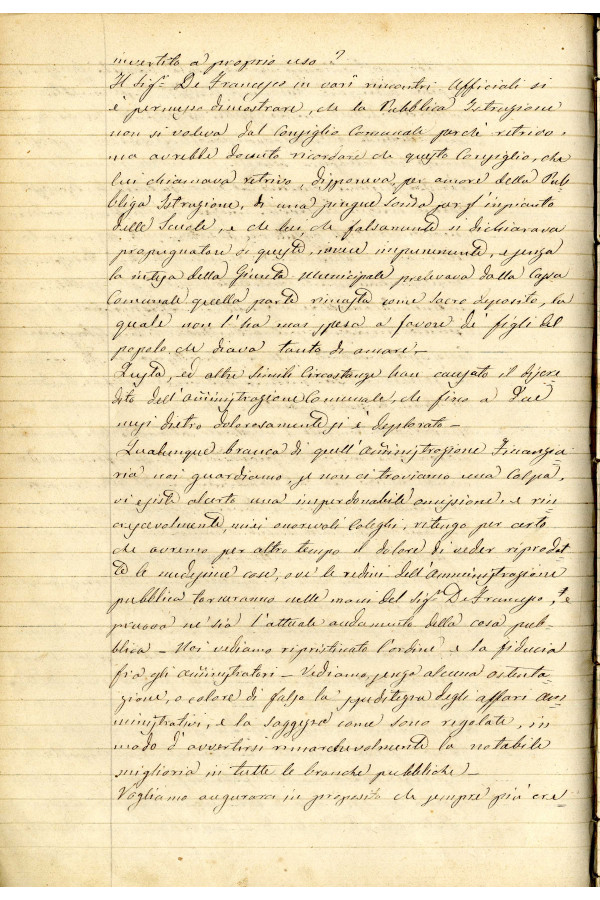 invertita a proprio uso?
Il Sig.r De Francesco in varî rincontri Officiali si
è permesso dimostrare, che la Pubblica Istruzione
non si voleva dal Consiglio Comunale perchè retrivo,
ma avrebbe dovuto ricordare che questo Consiglio, che
lui chiamava retrivo, disponeva per amore della Pub=
bliga Istruzione, di una pingue somma per l'impianto
delle Scuole, e che lui, che falsamente si dichiarava
propugnatore di queste, invece impunemente, e senza
la intesa della Giunta Municipale prelevava dalla Cassa
Comunale quella parte rimasta come sacro deposito, la
quale non l'ha mai spesa a favore de' figli del
popolo che diceva tanto di amare.—
Questa, ed altre simili Circostanze han causato il discre
dito dell'Amministrazione Comunale, che fino a Due
mesi dietro dolorosamente si è deplorato—
Qualunque branca di quell'Amministrazione Finanzia
ria noi guardiamo, se non ci troviamo una Colpa,
vi esiste al certo una imperdonabile omissione, e rin=
crescevolmente, miei onorevoli Colleghi, ritengo per certo
che avremo per altro tempo il dolore di veder riprodot=
te le medesime cose, ove le redini dell'Amministrazione
pubblica torneranno nelle mani del Sig.r De Francesco, e
pruova ne sia l'attuale andamento della cosa pub=
blica— Noi vediamo ripristinato l'ordine e la fiducia
fra gli amministratori— Vediamo, senza alcuna ostenta=
zione, o colore di falso la speditezza degli affari am=
ministrativi, e la saggezza come sono regolate, in
modo d'avvertirsi rimarchevolmente la notabile
miglioria in tutte le branche pubbliche—
Vogliamo augurarci in proposito che sempre più cre=